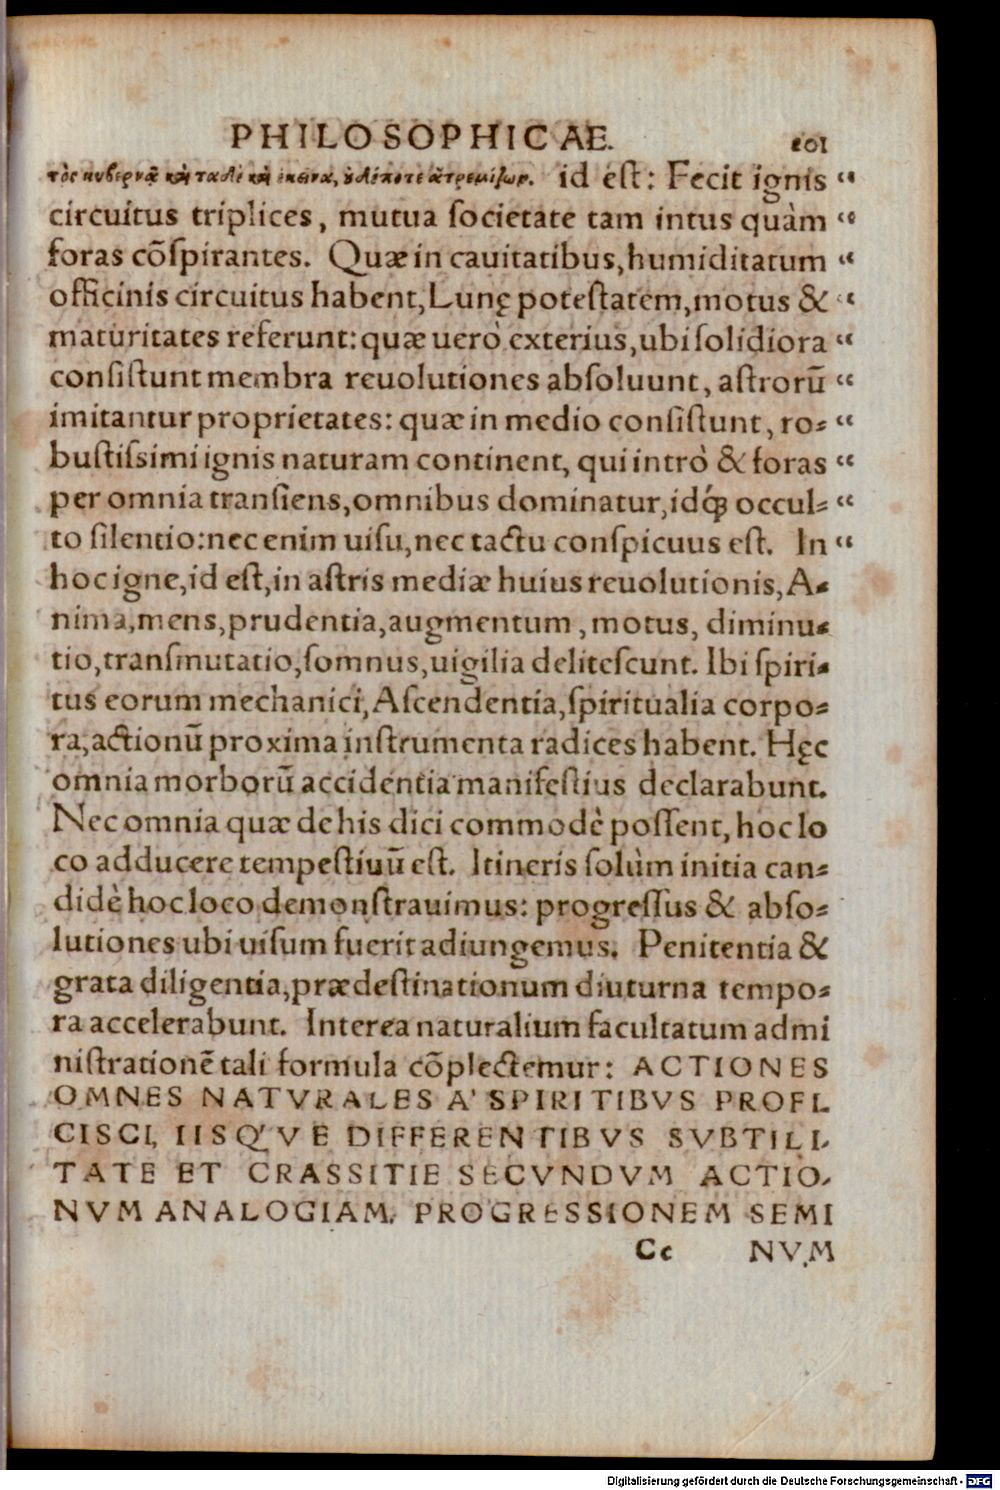 PHILOSOPHICAE. 201
τὸς κυβερνᾷ καὶ ταδὲ καὶ ἐκεῖνα, οὐδέποτε ἀτρεμίζων. id est: Fecit ignis “
circuitus triplices, mutua societate tam intus quàm “
foras cōspirantes. Quæ in cauitatibus, humiditatum “
officinis circuitus habent, Lunę potestatem, motus & “
maturitates referunt: quæ uerò exterius, ubi solidiora “
consistunt membra reuolutiones absoluunt, astrorū “
imitantur proprietates: quæ in medio consistunt, ro= “
bustissimi ignis naturam continent, qui intrò & foras “
per omnia transiens, omnibus dominatur, idq́; occul= “
to silentio: nec enim uisu, nec tactu conspicuus est. In “
hoc igne, id est, in astris mediæ huius reuolutionis, A=
nima, mens, prudentia, augmentum, motus, diminu=
tio, transmutatio, somnus, uigilia delitescunt. Ibi spiri=
tus eorum mechanici, Ascendentia, spiritualia corpo=
ra, actionū proxima instrumenta radices habent. Hęc
omnia morborū accidentia manifestius declarabunt.
Nec omnia quæ de his dici commodè possent, hoc lo
co adducere tempestiuū est. Itineris solùm initia can=
didè hoc loco demonstrauimus: progressus & abso=
lutiones ubi uisum fuerit adiungemus. Penitentia &
grata diligentia, prædestinationum diuturna tempo=
ra accelerabunt. Interea naturalium facultatum admi
nistrationē tali formula cōplectemur: ACTIONES
OMNES NATVRALES A' SPIRITIBVS PROFI-
CISCI, IISQ'VE DIFFERENTIBVS SVBTILI-
TATE ET CRASSITIE SECVNDVM ACTIO-
NVM ANALOGIAM, PROGRESSIONEM SEMI
Cc NVM
Digitalisierung gefördert durch die Deutsche Forschungsgemeinschaft - DFG